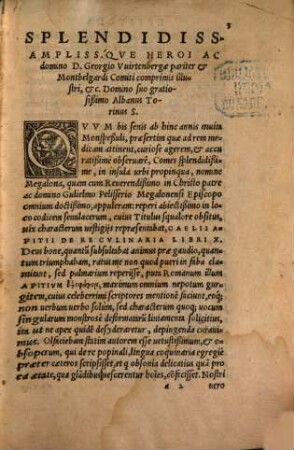 3
SPLENDIDISS.
AMPLISS. QVE HEROI AC
domino D. Georgio Vuirtenbergæ pariter &
Montbelgardi Comiti comprimis illu-
stri, &c. Domino suo gratio-
sissimo Albanus To-
rinus S.
QVVM bis senis ab hinc annis multa
Monspessuli, præsertim quæ ad rem me-
dicam attinent, curiose agerem, & accu-
ratissimè observarē, Comes splendidissi-
me, in insula urbi propinqua, nomine
Megalona, quam cum Reverendissimo in Christo patre
ac domino Gulielmo Pelisserio Megalonensi Episcopo
omnium doctissimo, appuleram: reperi abiectissimo in lo-
co codicem semilacerum, cuius Titulus squalore obsitus,
uix characterum uestigijs repræsentabat, CAELII A-
PITII DE RE CVLINARIA LIBRI X.
Deus bone, quantũ subsultabat animus præ gaudio, quan-
tum triumphabam, ratus me non quod pueri in faba cla-
mitent, sed palmarium reperisse, puta Romanum illum
APITIUM maximum omnium nepotum gur-
gitem, cuius celeberrimi scriptores mentionē fuciunt, eoq́;
non uerbum uerbo solum, sed characterum quoq́; uocum
singularum monstrosè deformatarũ liniamenta solicitius,
im ut ne apex quidē desyderaretur, depingenda curaui-
mus. Olficiebam statim autorem esse uetustissimum, & o-
bsoperum, qui de re popinali, lingua coquinaria egregiè
præter cæteros scripsisset, et q̃ obsonia delicatius quã pro-
ca ætate, qua glãdibus uescerentur hoies, cõfecisset. Nostri
a 2 uero